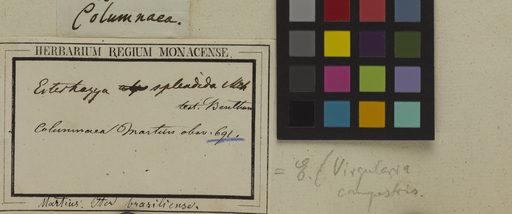 Columnaea.
HERBARIUM REGIUM MONACENSE.
Esterhazya splendida Mik
test. Bentham
Columnaea Martius obs. 691.
Martius: Iter brasiliense.
= E. (Virgularia
campestris.